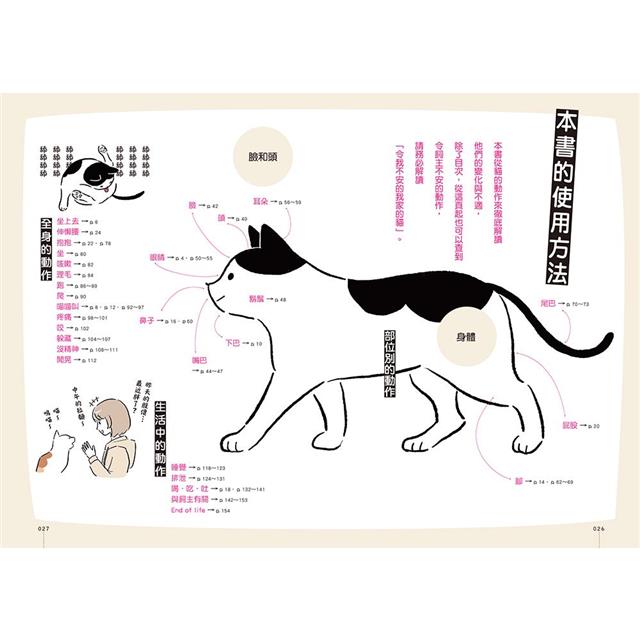 本書的使用方法
本書從貓的動作來徹底解讀
他們的變化與不適，
除了目次，從這頁起也可以查到
令飼主不安的動作，
請務必解讀
「令我不安的我家的貓」。
臉和頭
臉 → p 42
頭 → p 40
耳朵 → p 56～59
眼睛 → p 4、p 50～55
鬍鬚 → p 48
鼻子 → p 16、p 60
下巴 → p 10
嘴巴
→ p 44～47
部位別的動作
身體
尾巴 → p 70～73
屁股 → p 20
腳 → p 14、p 62～69
全身的動作
坐上去 → p 6
伸懶腰 → p 24
抱抱 → p 22、p 78
坐 → p 80
咳嗽 → p 82
理毛 → p 84
跑 → p 86～89
爬 → p 90
喵喵叫 → p 8、p 12、p 92～97
疼痛 → p 98～101
咬 → p 102
躲藏 → p 104～107
沒精神 → p 108～111
閒晃 → p 112
生活中的動作
睡覺 → p 118～123
排泄 → p 124～131
喝、吃、吐 → p 18、p 132～141
與飼主有關 → p 142～153
End of life → p 154
昨天的股價…
最近胖了？
中午的拉麵～
喵～
喵喵～
027
026